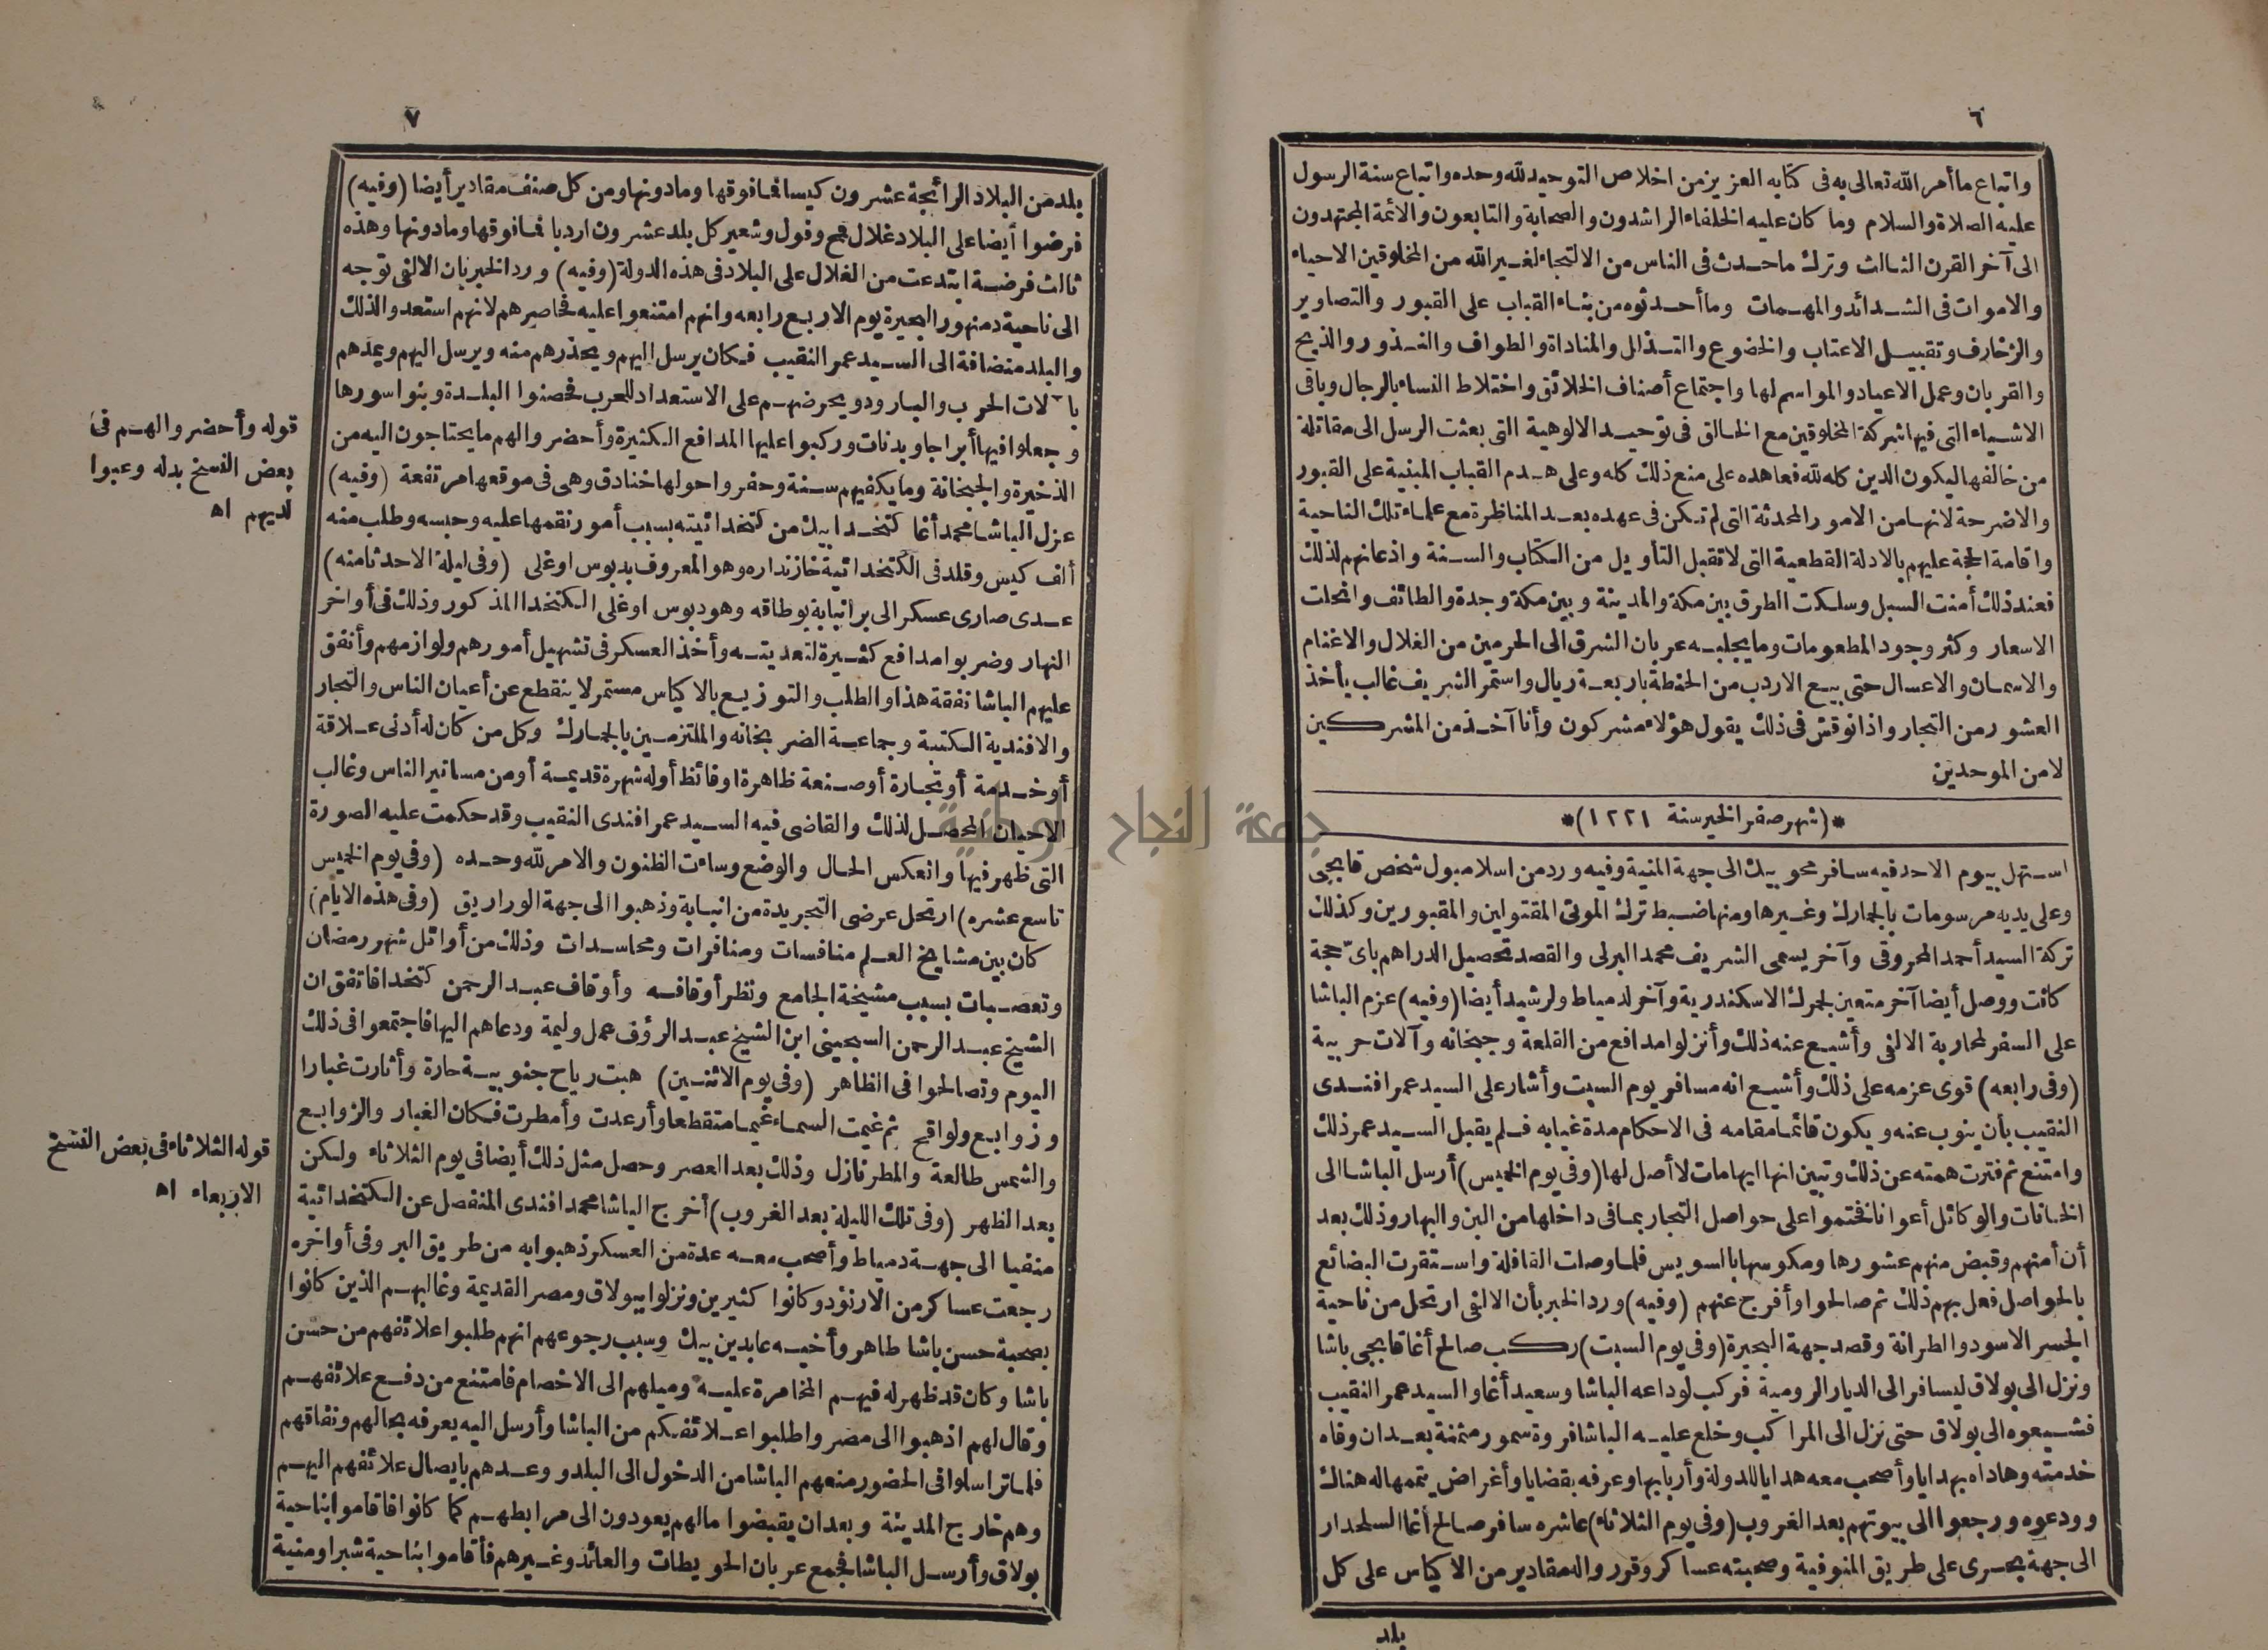 ٦
واتباع ما أمر الله تعالى به فى كتابه العزيز من اخلاص التوحيد لله وحده واتباع سنة الرسول
عليه الصلاة والسلام وما كان عليه الخلفاء الراشدون والصحابة والتابعون والائمة المجتهدون
الى آخر القرن الثالث وترك ما حدث فى الناس من الالتجاء لغير الله من المخلوقين الاحياء
والاموات فى الشدائد والمهمات وما أحدثوه من بناء القباب على القبور والتصاوير
والزخارف وتقبيل الاعتاب والخضوع والتذلل والمناداة والطواف والنذور والذبح
والقربان وعمل الاعياد والمواسم لها واجتماع أصناف الخلائق واختلاط النساء بالرجال وباقى
الاشياء التى فيها شركة المخلوقين مع الخالق فى توحيد الالوهية التى بعثت الرسل الى مقاتلة
من خالفها ليكون الدين كله لله فعاهده على منع ذلك كله وعلى هدم القباب المبنية على القبور
والاضرحة لانها من الامور المحدثة التى لم تكن فى عهده بعد المناظرة مع علماء تلك الناحية
واقامة الحجة عليهم بالادلة القطعية التى لا تقبل التأويل من الكتاب والسنة واذعانهم لذلك
فعند ذلك أمنت السبل وسلكت الطرق بين مكة والمدينة وبين مكة وجدة والطائف وانحلت
الاسعار وكثر وجود المطعومات وما يجلبه عربان الشرق الى الحرمين من الغلال والاغنام
والاسمان والاعسال حتى بيع الاردب من الحنطة باربعة ريال واستمر الشريف غالب يأخذ
العشور من التجار واذا نوقش فى ذلك يقول هؤلاء مشركون وأنا آخذ من المشركين
لا من الموحدين
*(شهر صفر الخير سنة ١٢٢١)*
استهل بيوم الاحد فيه سافر محو بيك الى جهة المنية وفيه ورد من اسلامبول شخص قابجى
وعلى يديه مرسومات بالجمارك وغيرها ومنها ضبط ترك الموتى المقتولين والمقبورين وكذلك
تركة السيد أحمد المحروقى وآخر يسمى الشريف محمد البرلى والقصد تحصيل الدراهم باىّ حجة
كانت ووصل أيضا آخر متعين لجمرك الاسكندرية وآخر لدمياط ولرشيد أيضا (وفيه) عزم الباشا
على السفر لمحاربة الالفى وأشيع عنه ذلك وأنزلوا مدافع من القلعة وجبخانه وآلات حربية
(وفى رابعه) قوى عزمه على ذلك وأشيع انه مسافر يوم السبت وأشار على السيد عمر افندى
النقيب بأن ينوب عنه ويكون قائما مقامه فى الاحكام مدة غيابه فلم يقبل السيد عمر ذلك
وامتنع ثم فترت همته عن ذلك وتبين انها ايهامات لا أصل لها (وفى يوم الخميس) أرسل الباشا الى
الخانات والوكائل أعوانا فختموا على حواصل التجار بما فى داخلها من البن والبهار وذلك بعد
أن أمنهم وقبض منهم عشورها ومكوسها بالسويس فلما وصلت القافلة واستقرت البضائع
بالحواصل فعل بهم ذلك ثم صالحوا وأفرج عنهم (وفيه) ورد الخبر بأن الالفى ارتحل من ناحية
الجسر الاسود والطرانة وقصد جهة البحيرة (وفى يوم السبت) ركب صالح أغا قابجى باشا
ونزل الى بولاق ليسافر الى الديار الرومية فركب لوداعه الباشا وسعيد أغا والسيد عمر النقيب
فشيعوه الى بولاق حتى نزل الى المراكب وخلع عليه الباشا فروة سمور مثمنة بعد ان وفاه
خدمته وهاداه بهدايا وأصحب معه هدايا للدولة وأربابها وعرفه بقضايا وأغراض يتمها له هناك
وودعوه ورجعوا الى بيوتهم بعد الغروب (وفى يوم الثلاثاء) عاشره سافر صالح أغا السلحدار
الى جهة بحرى على طريق المنوفية وصحبته عساكر وقرر واله مقادير من الاكياس على كل
بلد
٧
بلد من البلاد الرائجة عشرون كيسا فما فوقها وما دونها ومن كل صنف مقادير أيضا (وفيه)
فرضوا أيضا على البلاد غلال قمح وفول وشعير كل بلد عشرون اردبا فما فوقها وما دونها وهذه
ثالث فرضة ابتدعت من الغلال على البلاد فى هذه الدولة (وفيه) ورد الخبر بان الالفى توجه
الى ناحية دمنهور البحيرة يوم الاربع رابعه وانهم امتنعوا عليه فحاصرهم لانهم استعدوا لذلك
والبلد منضافة الى السيد عمر النقيب فكان يرسل اليهم ويحذرهم منه ويرسل اليهم ويمدهم
بآلات الحرب والبارود ويحرضهم على الاستعداد للحرب فحصنوا البلدة وبنوا سورها
وجعلوا فيها أبراجا وبدنات وركبوا عليها المدافع الكثيرة وأحضر والهم ما يحتاجون اليه من
الذخيرة والجبخانة وما يكفيهم سنة وحفروا حولها خنادق وهى فى موقعها مرتفعة (وفيه)
عزل الباشا محمد أغا كتخدا بيك من كتخدائيته بسبب أمور نقمها عليه وحبسه وطلب منه
ألف كيس وقلد فى الكتخدائية خازنداره وهو المعروف بدبوس اوغلى (وفى ليلة الاحد ثامنه)
عدى صارى عسكر الى بر انبابة بوطاقه وهو دبوس اوغلى الكتخدا المذكور وذلك فى أواخر
النهار وضربوا مدافع كثيرة لتعديته وأخذ العسكر فى تشهيل أمورهم ولوازمهم وأنفق
عليهم الباشا نفقة هذا والطلب والتوزيع بالاكياس مستمر لا ينقطع عن أعيان الناس والتجار
والافندية الكتبة وجماعة الضربخانه والملتزمين بالجمارك وكل من كان له أدنى علاقة
أو خدمة أو تجارة أو صنعة ظاهرة او فائظ أو له شهرة قديمة أو من مساتير الناس وغالب
الاحيان المحصل لذلك والقاضى فيه السيد عمر افندى النقيب وقد حكمت عليه الصورة
التى ظهر فيها وانعكس الحال والوضع وساءت الظنون والامر لله وحده (وفى يوم الخميس
تاسع عشره) ارتحل عرضى التجريدة من انبابة وذهبوا الى جهة الوراريق (وفى هذه الايام)
كان بين مشايخ العلم منافسات ومنافرات ومحاسدات وذلك من أوائل شهر رمضان
وتعصبات بسبب مشيخة الجامع ونظر أوقافه وأوقاف عبد الرحمن كتخدا فاتفق ان
الشيخ عبد الرحمن السجينى ابن الشيخ عبد الرؤف عمل وليمة ودعاهم اليها فاجتمعوا فى ذلك
اليوم وتصالحوا فى الظاهر (وفى يوم الاثنين) هبت رياح جنوبية حارة وأثارت غبارا
وزوابع ولواقح ثم غيمت السماء غيما متقطعا وأرعدت وأمطرت فكان الغبار والزوابع
والشمس طالعة والمطر نازل وذلك بعد العصر وحصل مثل ذلك أيضا فى يوم الثلاثاء ولكن
بعد الظهر (وفى تلك الليلة بعد الغروب) أخرج الباشا محمد افندى المنفصل عن الكتخدائية
منفيا الى جهة دمياط وأصحب معه عدة من العسكر ذهبوا به من طريق البر وفى أواخره
رجعت عساكر من الارنؤد وكانوا كثيرين ونزلوا ببولاق ومصر القديمة وغالبهم الذين كانوا
بصحبة حسن باشا طاهر وأخيه عابدين بيك وسبب رجوعهم انهم طلبوا علائفهم من حسن
باشا وكان قد ظهر له فيهم المخامرة عليه وميلهم الى الاخصام فامتنع من دفع علائفهم
وقال لهم اذهبوا الى مصر واطلبوا علائفكم من الباشا وأرسل اليه يعرفه بحالهم ونفاقهم
فلما تراسلوا فى الحضور منعهم الباشا من الدخول الى البلد ووعدهم بايصال علائفهم اليهم
وهم خارج المدينة وبعد ان يقبضوا مالهم يعودون الى مرابطهم كما كانوا فاقاموا بناحية
بولاق وأرسل الباشا فجمع عربان الحويطات والعائد وغيرهم فأقاموا بناحية شبرا ومنية
قوله وأحضر والهم فى
بعض النسخ بدله وعبوا
لديهم اه
قوله الثلاثاء فى بعض النسخ
الاربعاء اه
جامعة النجاح الوطنية